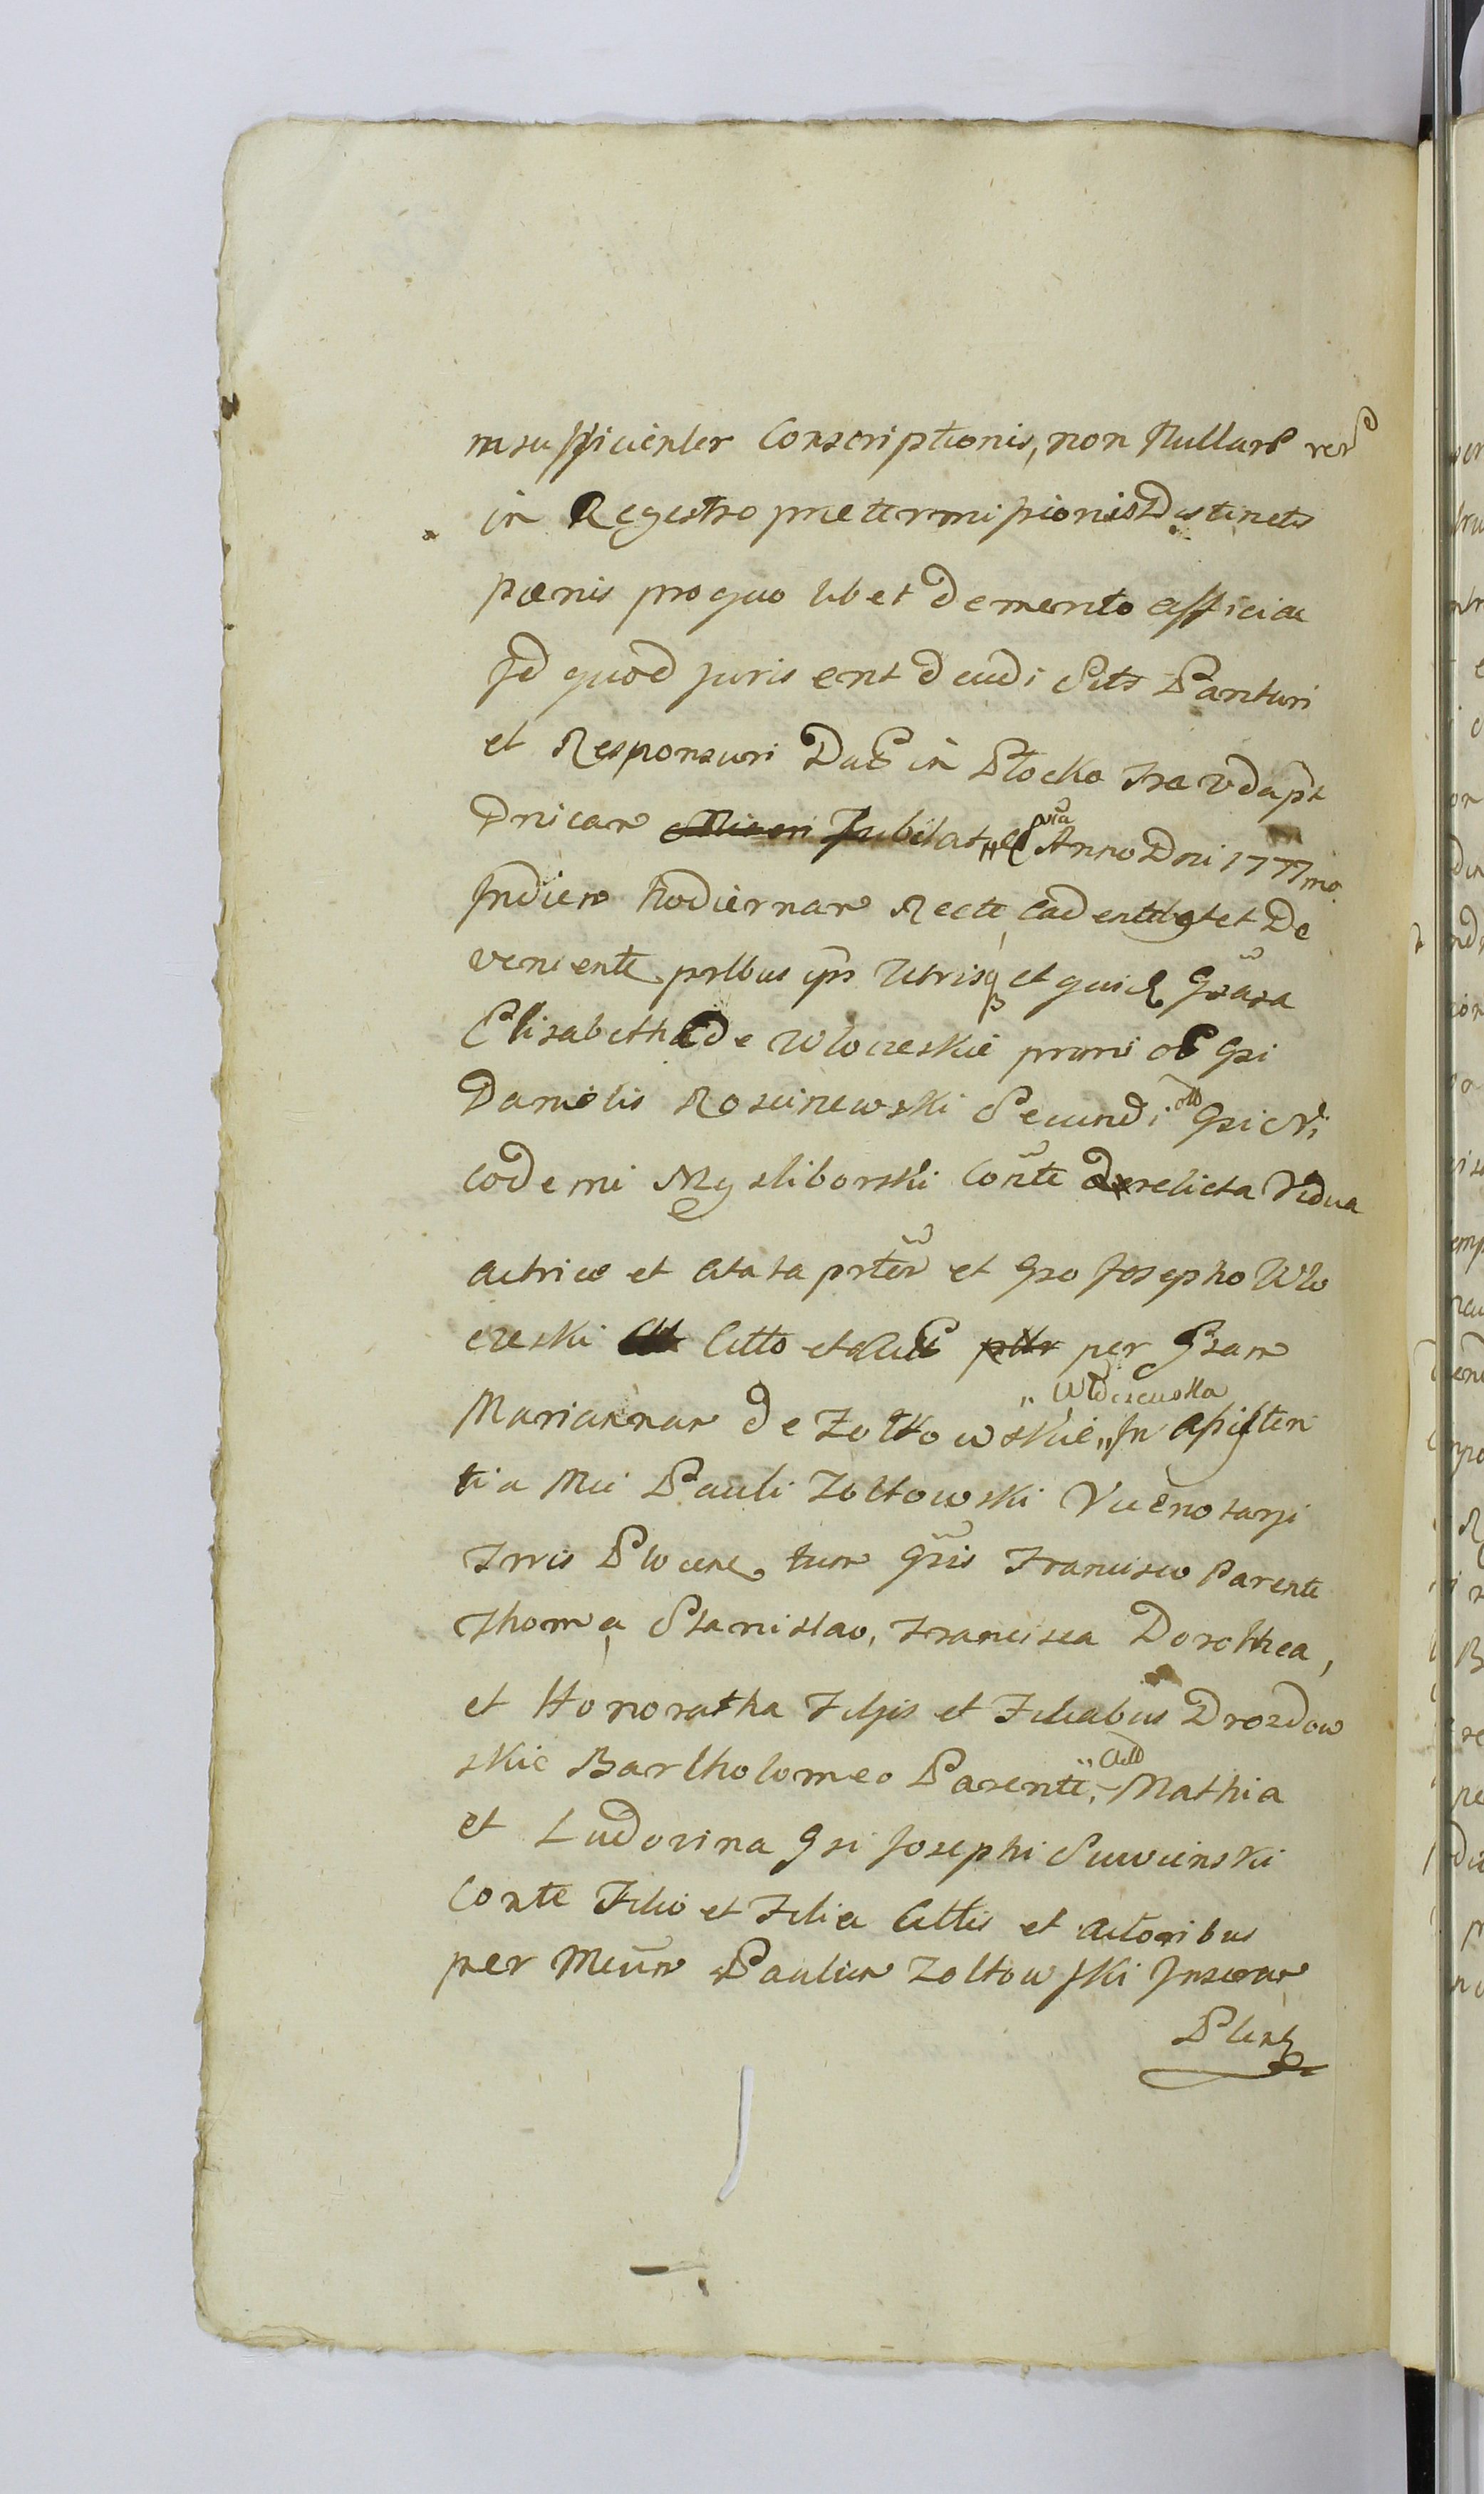 insufficienter Conscriptionis, non Nullare rer
in Regestro prætermissionis Distinctis
pænis pro quo libet demerito afficiae
Id quod juris erit d eudi Sits Parituri
et Responsuri Dat in Płocko Fra
Dnicam Jubilate Anno Dni 1777mo
In diem hodiernam Recte Cadentibq et De
veniente prtbus ijs Utrisq et quid Gsa
Elisabetha de Włoczeskie primi olt Gsi
Danielis Roscinewski Secundi olt Gsi Ni
codemi Mysliborski Conte derelicta Vidua
actrice et Ctata prter et Gso Josepho Wło
czeski Citto et per Gsam
Mariannam de Zołtowskie „ In assisten
„ Włoczewska
tia Mci Pauli Zołtowski Vicenotarji
Trris Plocen tum Gsis Francisco Parente
Thoma Stanislao, Francisca Dorothea,
et Honoratha Filijs et Filiabus Drozdow
skie Bartholomeo Parente, Mathia
et Ludovina Gsi Josephi Suwinski
Conte Filio et Filia Cittis et actoribus
per Mcum Paulum Zołtowski